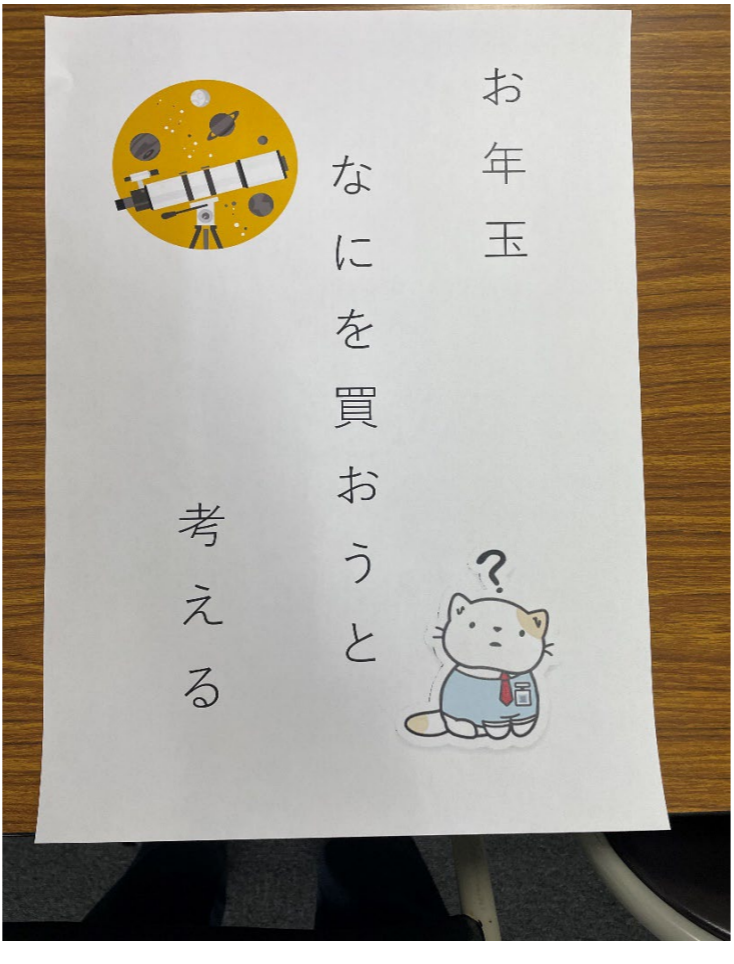 お年玉
なにを買おうと
考える
?